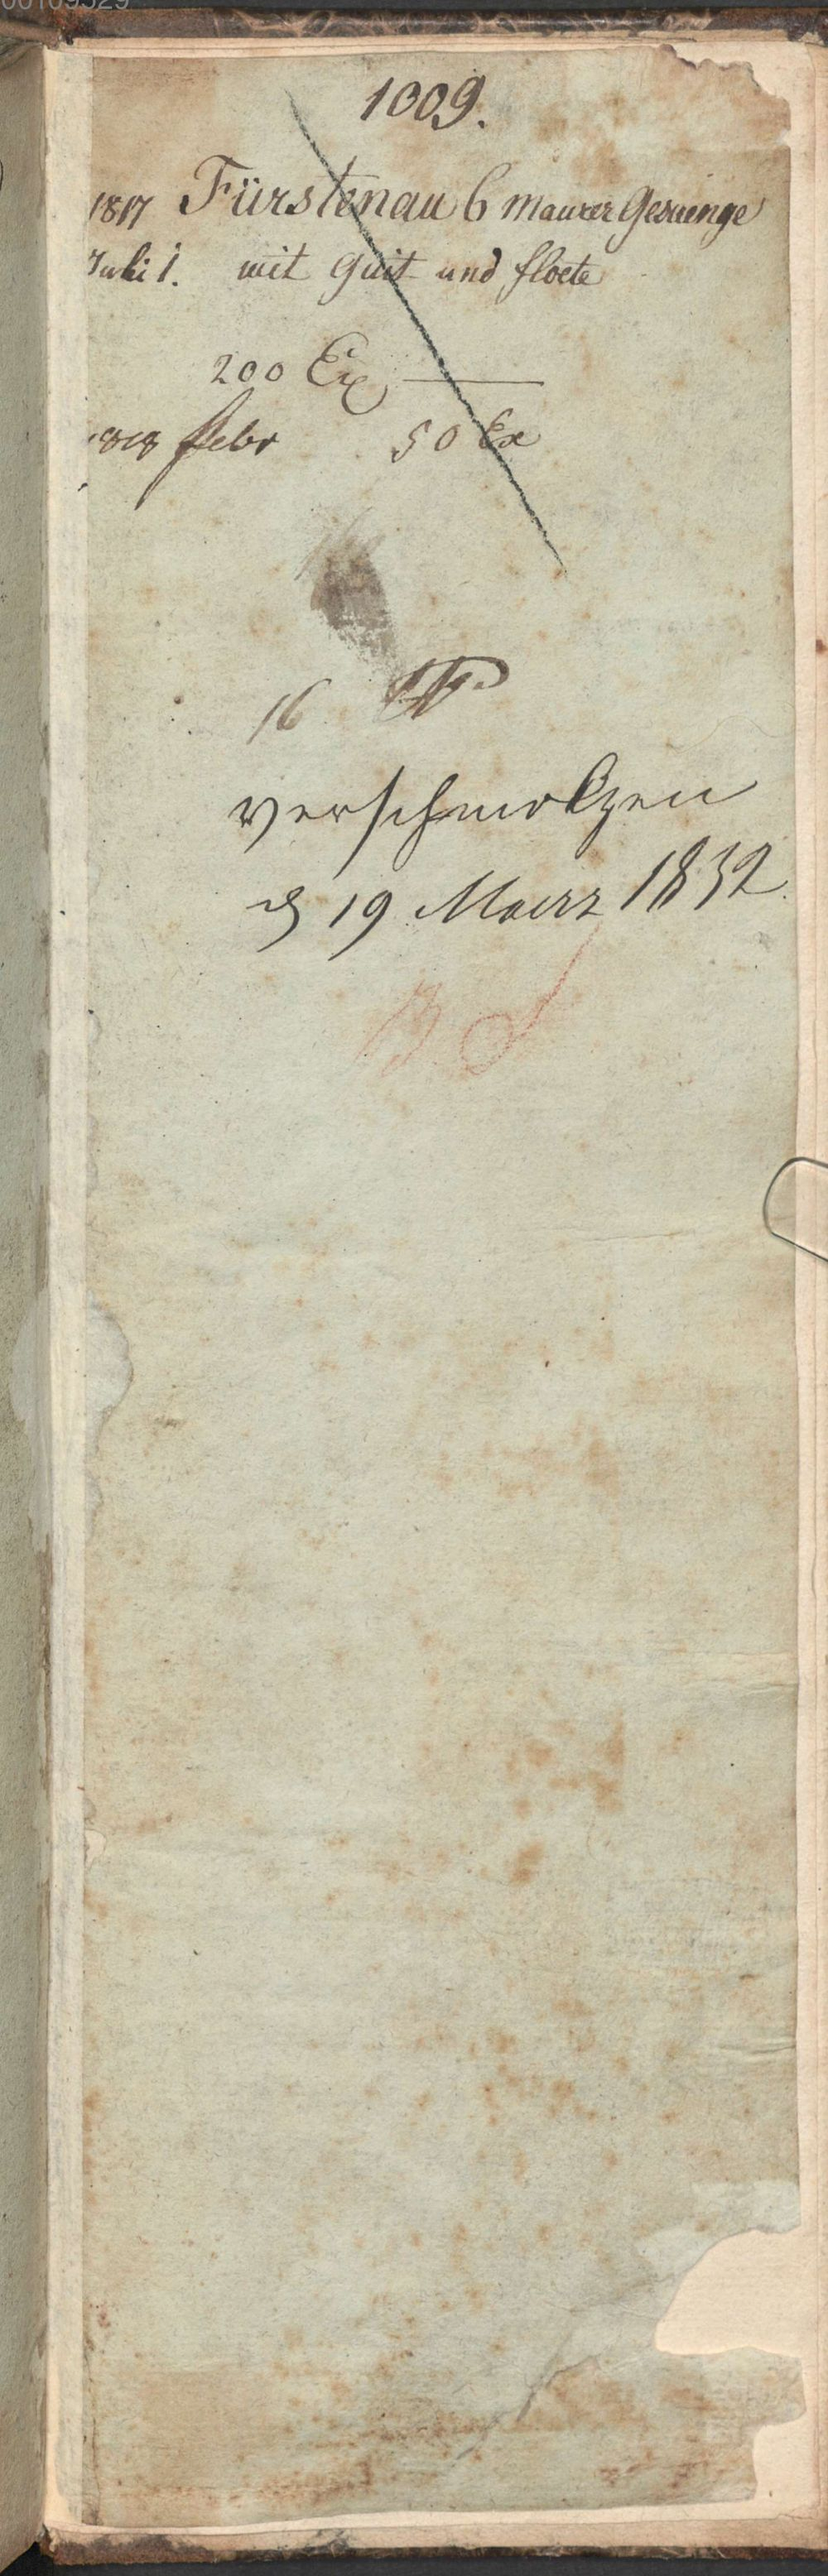 00109529
1009.
1817 Fürstenau 6 Maurer Gesaenge
Juli 1. mit Guit und floete
200 Ex
1818 febr 50 Ex
16
verschmolzen
d 19 Maerz 1832